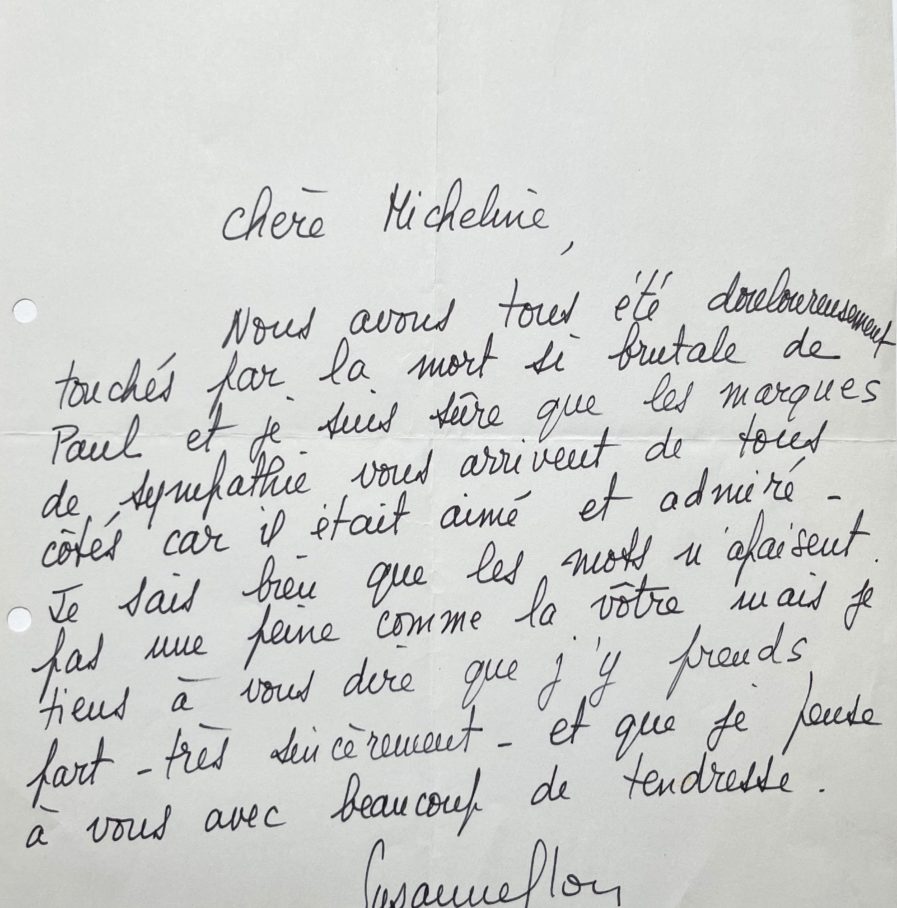 Chère Micheline,
Nous avons tous été douloureusement
touchés par la mort si brutale de
Paul et je suis sûre que les marques
de sympathie vous arrivent de tous
côtés car il était aimé et admiré -
Je sais bien que les mots n'apaisent
pas une peine comme la vôtre mais je
tiens à vous dire que j'y prends
part - très sincèrement - et que je pense
à vous avec beaucoup de tendresse.
Suzanne Flon